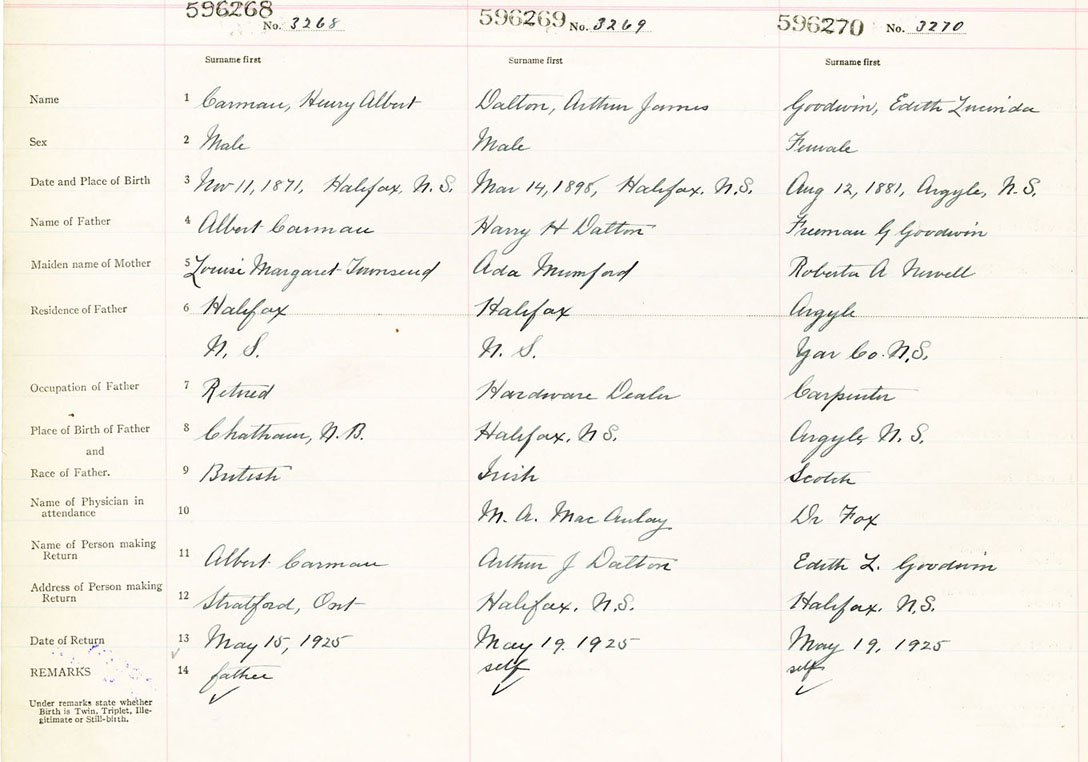 596268 No. 3268 596269 No. 3269 596270 No. 3270
Surname first Surname first Surname first
Name 1 Carman, Henry Albert Dalton, Arthur James Goodwin, Edith Lucinda
Sex 2 Male Male Female
Date and Place of Birth 3 Nov 11, 1871, Halifax, N.S. Mar 14, 1895, Halifax. N.S. Aug 12, 1881, Argyle, N.S.
Name of Father 4 Albert Carman Harry H Dalton Freeman G Goodwin
Maiden name of Mother 5 Louise Margaret Townsend Ada Mumford Roberta A Newell
Residence of Father 6 Halifax Halifax Argyle
N. S. N. S. Yar Co. N.S.
Occupation of Father 7 Retired Hardware Dealer Carpenter
Place of Birth of Father 8 Chatham, N.B. Halifax. N.S. Argyle, N.S.
and
Race of Father. 9 British Irish Scotch
Name of Physician in
attendance 10 M. A. MacAulay Dr Fox
Name of Person making
Return 11 Albert Carman Arthur J Dalton Edith L. Goodwin
Address of Person making
Return 12 Stratford, Ont Halifax. N.S. Halifax. N.S.
Date of Return 13 May 15, 1925 May 19. 1925 May 19, 1925
REMARKS 14 father self self
Under remarks state whether
Birth is Twin, Triplet, Ille-
gitimate or Still-birth.